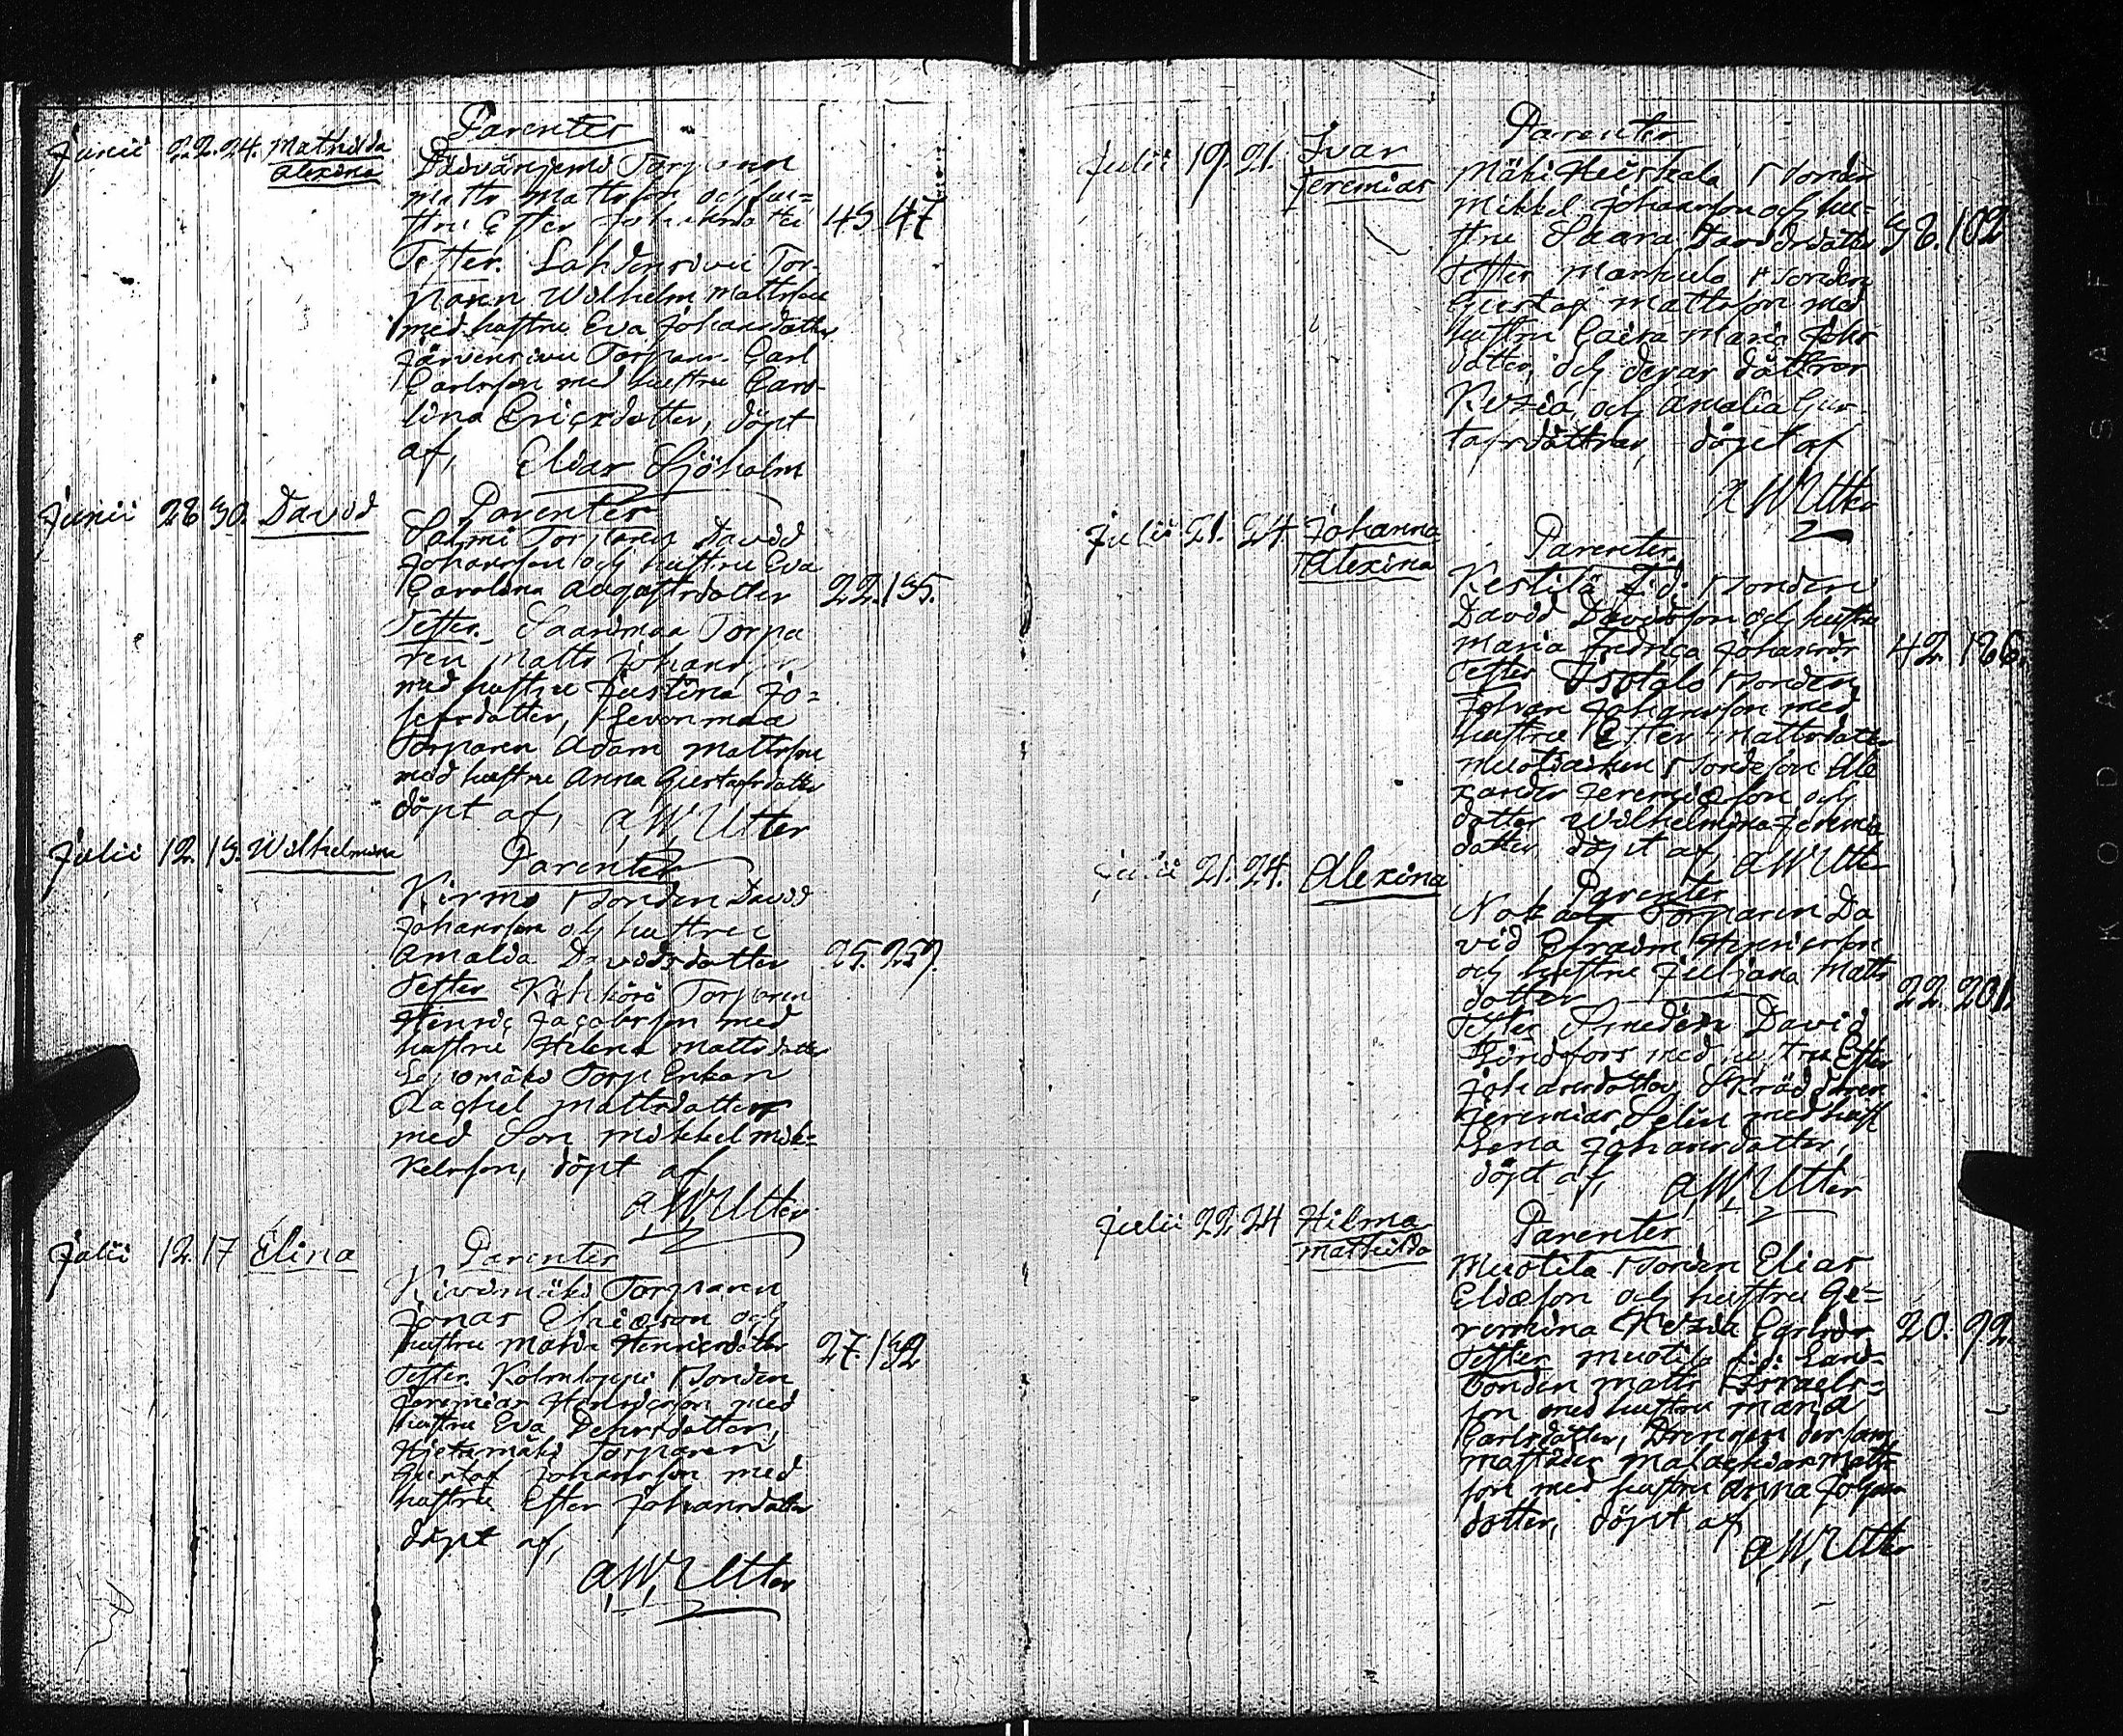 Junii 22. 24. Mathilda
Alexina
Parenter
Torparen
Matts Mattsson och hu=
stru Ester Johansdotter 45. 47
Tester. Lahdenrivu Tor-
paren Wilhelm Mattsson
med hustru Eva Johansdotter
Järvenrivu Torparen Carl
Carlsson med hustru Caro-
lina Ericsdotter, döpt
af, Elias Sjöholm
Junii 28 30. David
Parenter
Salmi Torparen David
Johansson och hustru Eva
Carolina Augustsdotter 22. 135.
Tester. Saarimaa Torpa
ren Matts Johansson
med hustru Justina Jo=
sefsdotter, Levonmaa
Torparen Adam Mattsson
med hustru Anna Gustafsdotter
döpt af, A. W. Utter
Julii 12. 15. Wilhelmina
Parenter
Kirmo Bonden David
Johansson och hustru
Amalia Davidsdotter 25. 259.
Tester Torparen
Henric Jacobsson med
hustru Helena Mattsdotter
Torp Enkan
Rachel Mattsdotter
med Son Mikkel Mik=
kelsson, döpt af
A. W. Utter
Julii 12. 17 Elina
Parenter
Kivimäki Torparen
Jonas Ericsson och
hustru Maria Henricsdotter 27. 132
Tester. Bonden
Jeremias Henricsson med
hustru Eva
Hietamäki Torparen
Gustaf Johansson med
hustru Ester Johansdotter
döpt af,
A. W. Utter
Julii 19. 21. Ivar
Jeremias
Parenter
Mäki Heiskala Bonden
Mikkel Johansson och hu=
stru Saara Davidsdotter 38. 102
Tester Markula Bonden
Gustaf Mattsson med
hustru Caisa Maria Johs
dotter, och deras döttrar
Kezia och Amalia Gus-
tafsdöttrar, döpt af
A W Utter
Julii 21. 24 Johanna
Alexina
Parenter.
Kestilä Bonden
David Davidsson och hustru
Maria Fredrica Johansdr 42. 186.
Tester Isotalo Bonden
Johan Johansson med
hustru Ester Mattsdotter
Bondeson Ale
xander Jeremiæson och
dotter Wilhelmina Jeremiæ
dotter, döpt af, A W Utter
Julii 21. 24. Alexina
Parenter
Torparen Da
vid Efraim Henricsson
och hustru Juliana Matts
dotter 22. 201.
Tester Smeden David
Lindfors med hustru Ester
Johansdotter, Skräddaren
Jeremias Selin med hust
Lena Johansdotter,
döpt af, A. W. Utter
Julii 22. 24 Hilma
Mathilda
Parenter
Muotila Bonden Elias
Eliæson och hustru Ge=
remina Kezia Carlsdr 20. 92.
Tester Muotila Land=
bonden Matts Israels=
son med hustru Maria
Carlsdotter, Drengen dersam
mastädes Malachias Matts
son med hustru Anna Johans
dotter, döpt af
A. W. Utter
KODAK SAFE